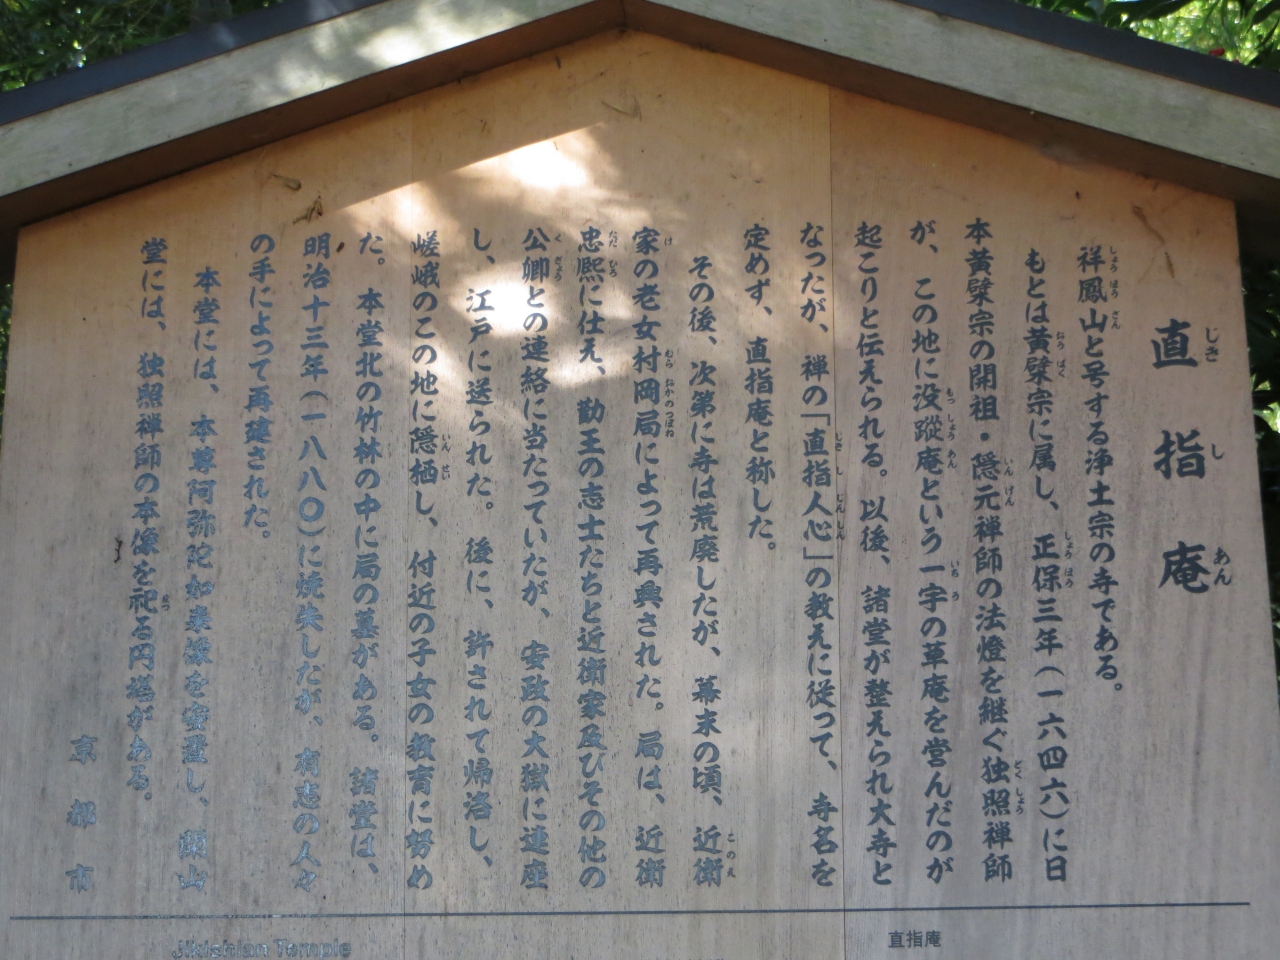 直指庵
祥鳳山と号する浄土宗の寺である。
もとは黄檗宗に属し、正保三年（一六四六）に日
本黄檗宗の開祖・隠元禅師の法燈を継ぐ独照禅師
が、この地に没蹤庵という一宇の草庵を営んだのが
起こりと伝えられる。以後、諸堂が整えられ大寺と
なったが、禅の「直指人心」の教えに従って、寺名を
定めず、直指庵と称した。
その後、次第に寺は荒廃したが、幕末の頃、近衛
家の老女村岡局によって再興された。局は、近衛
忠熈に仕え、勤王の志士たちと近衛家及びその他の
公卿との連絡に当たっていたが、安政の大獄に連座
し、江戸に送られた。後に、許されて帰洛し、
嵯峨のこの地に隠栖し、付近の子女の教育に努め
た。本堂北の竹林の中に局の墓がある。諸堂は、
明治十三年（一八八〇）に焼失したが、有志の人々
の手によって再建された。
本堂には、本尊阿弥陀如来像を安置し、開山
堂には、独照禅師の本像を祀る円塔がある。
京都市
Jikishian Temple
直指庵